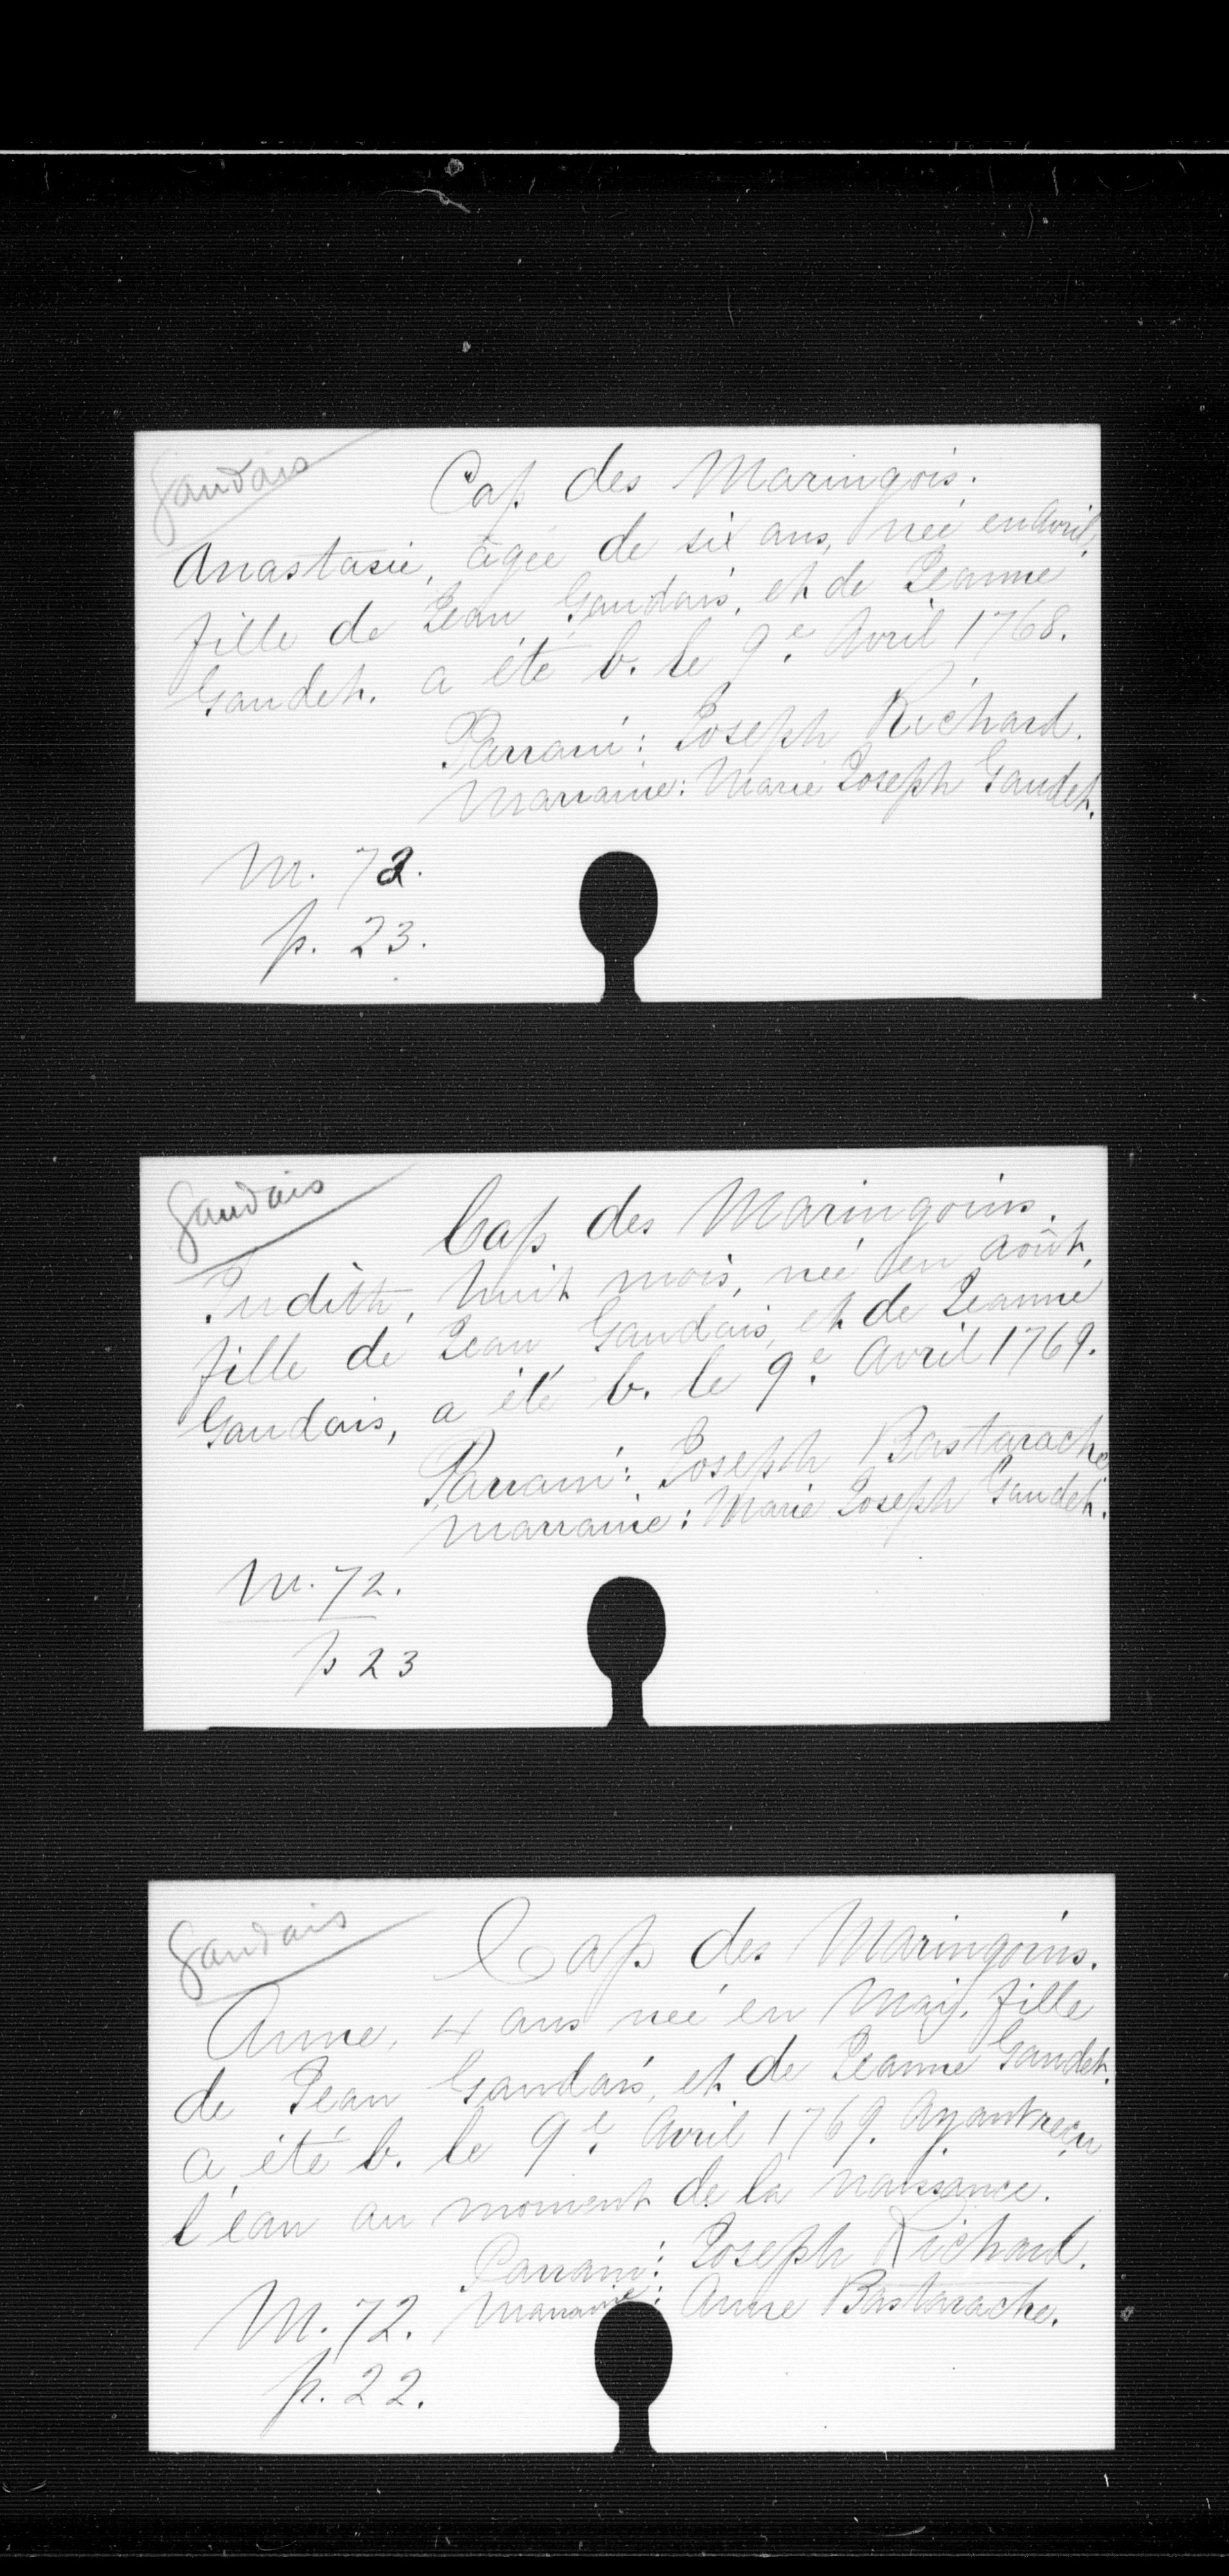 Gaudais
Cap des Maringois.
Anastasie, âgée de six ans, née en Avril,
fille de Jean Gaudais, et de Jeanne
Gaudet. a été b. le 9e. Avril 1768.
Parrain: Joseph Richard.
Marraine: Marie Joseph Gaudet.
M. 72.
p. 23.
Gaudais
Cap des Maringoins.
Judith, huit mois, née en août,
fille de Jean Gaudais, et de Jeanne
Gaudais, a été b. le 9e. Avril 1769.
Parrain: Joseph Bastarache
Marraine: Marie Joseph Gaudet.
M. 72.
p 23
Gaudais
Cap des Maringoins.
Anne, 4 ans née en May. fille
de Jean Gaudais, et de Jeanne Gaudet.
a été b. le 9e. Avril 1769. Ayant reçu
l'eau au moment de la naissance.
Parrain: Joseph Richard.
M. 72. Marraine: Anne Bastarache.
p. 22.